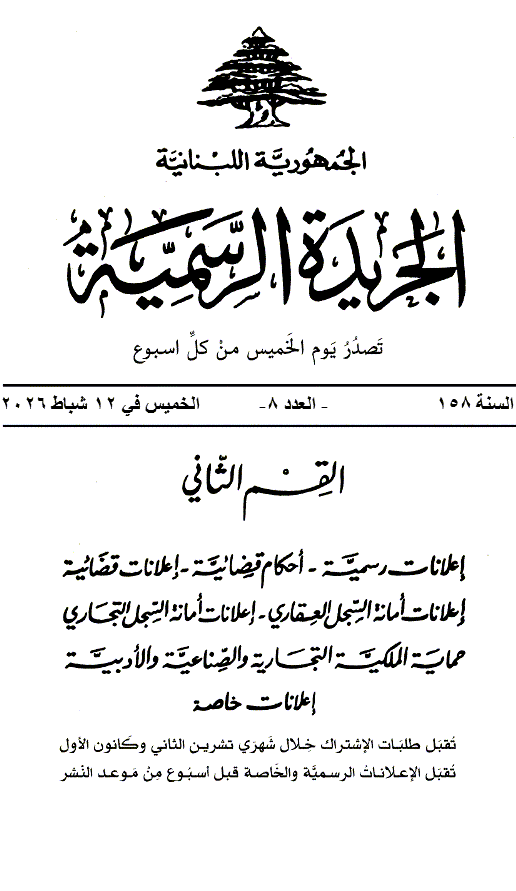 الجمهوريَّة اللبنانيَّة
الجَريدَة الرسَّميَّة
تَصدُرُ يَوم الخَميس منْ كلِّ اسبوع
السنة ١٥٨ - العدد ٨- الخميس في ١٢ شباط ٢٠٢٦
القِسْم الثّاني
إعلانات رسميَّة - أحكام قضائيَّة - إعلانات قضائية
إعلانات أمانة السّجل العقاري - إعلانات أمانة السّجل التجاري
حماية الملكيَّة التجارية والصّناعيَّة والأدبيَّة
إعلانات خاصة
تُقبَل طلبَات الإشتراك خِلال شَهرَي تشرين الثاني وكَانون الأول
تُقبَل الإعلاناتُ الرسميَّة والخَاصة قبل أسبُوع مِنْ مَوعد النَشر